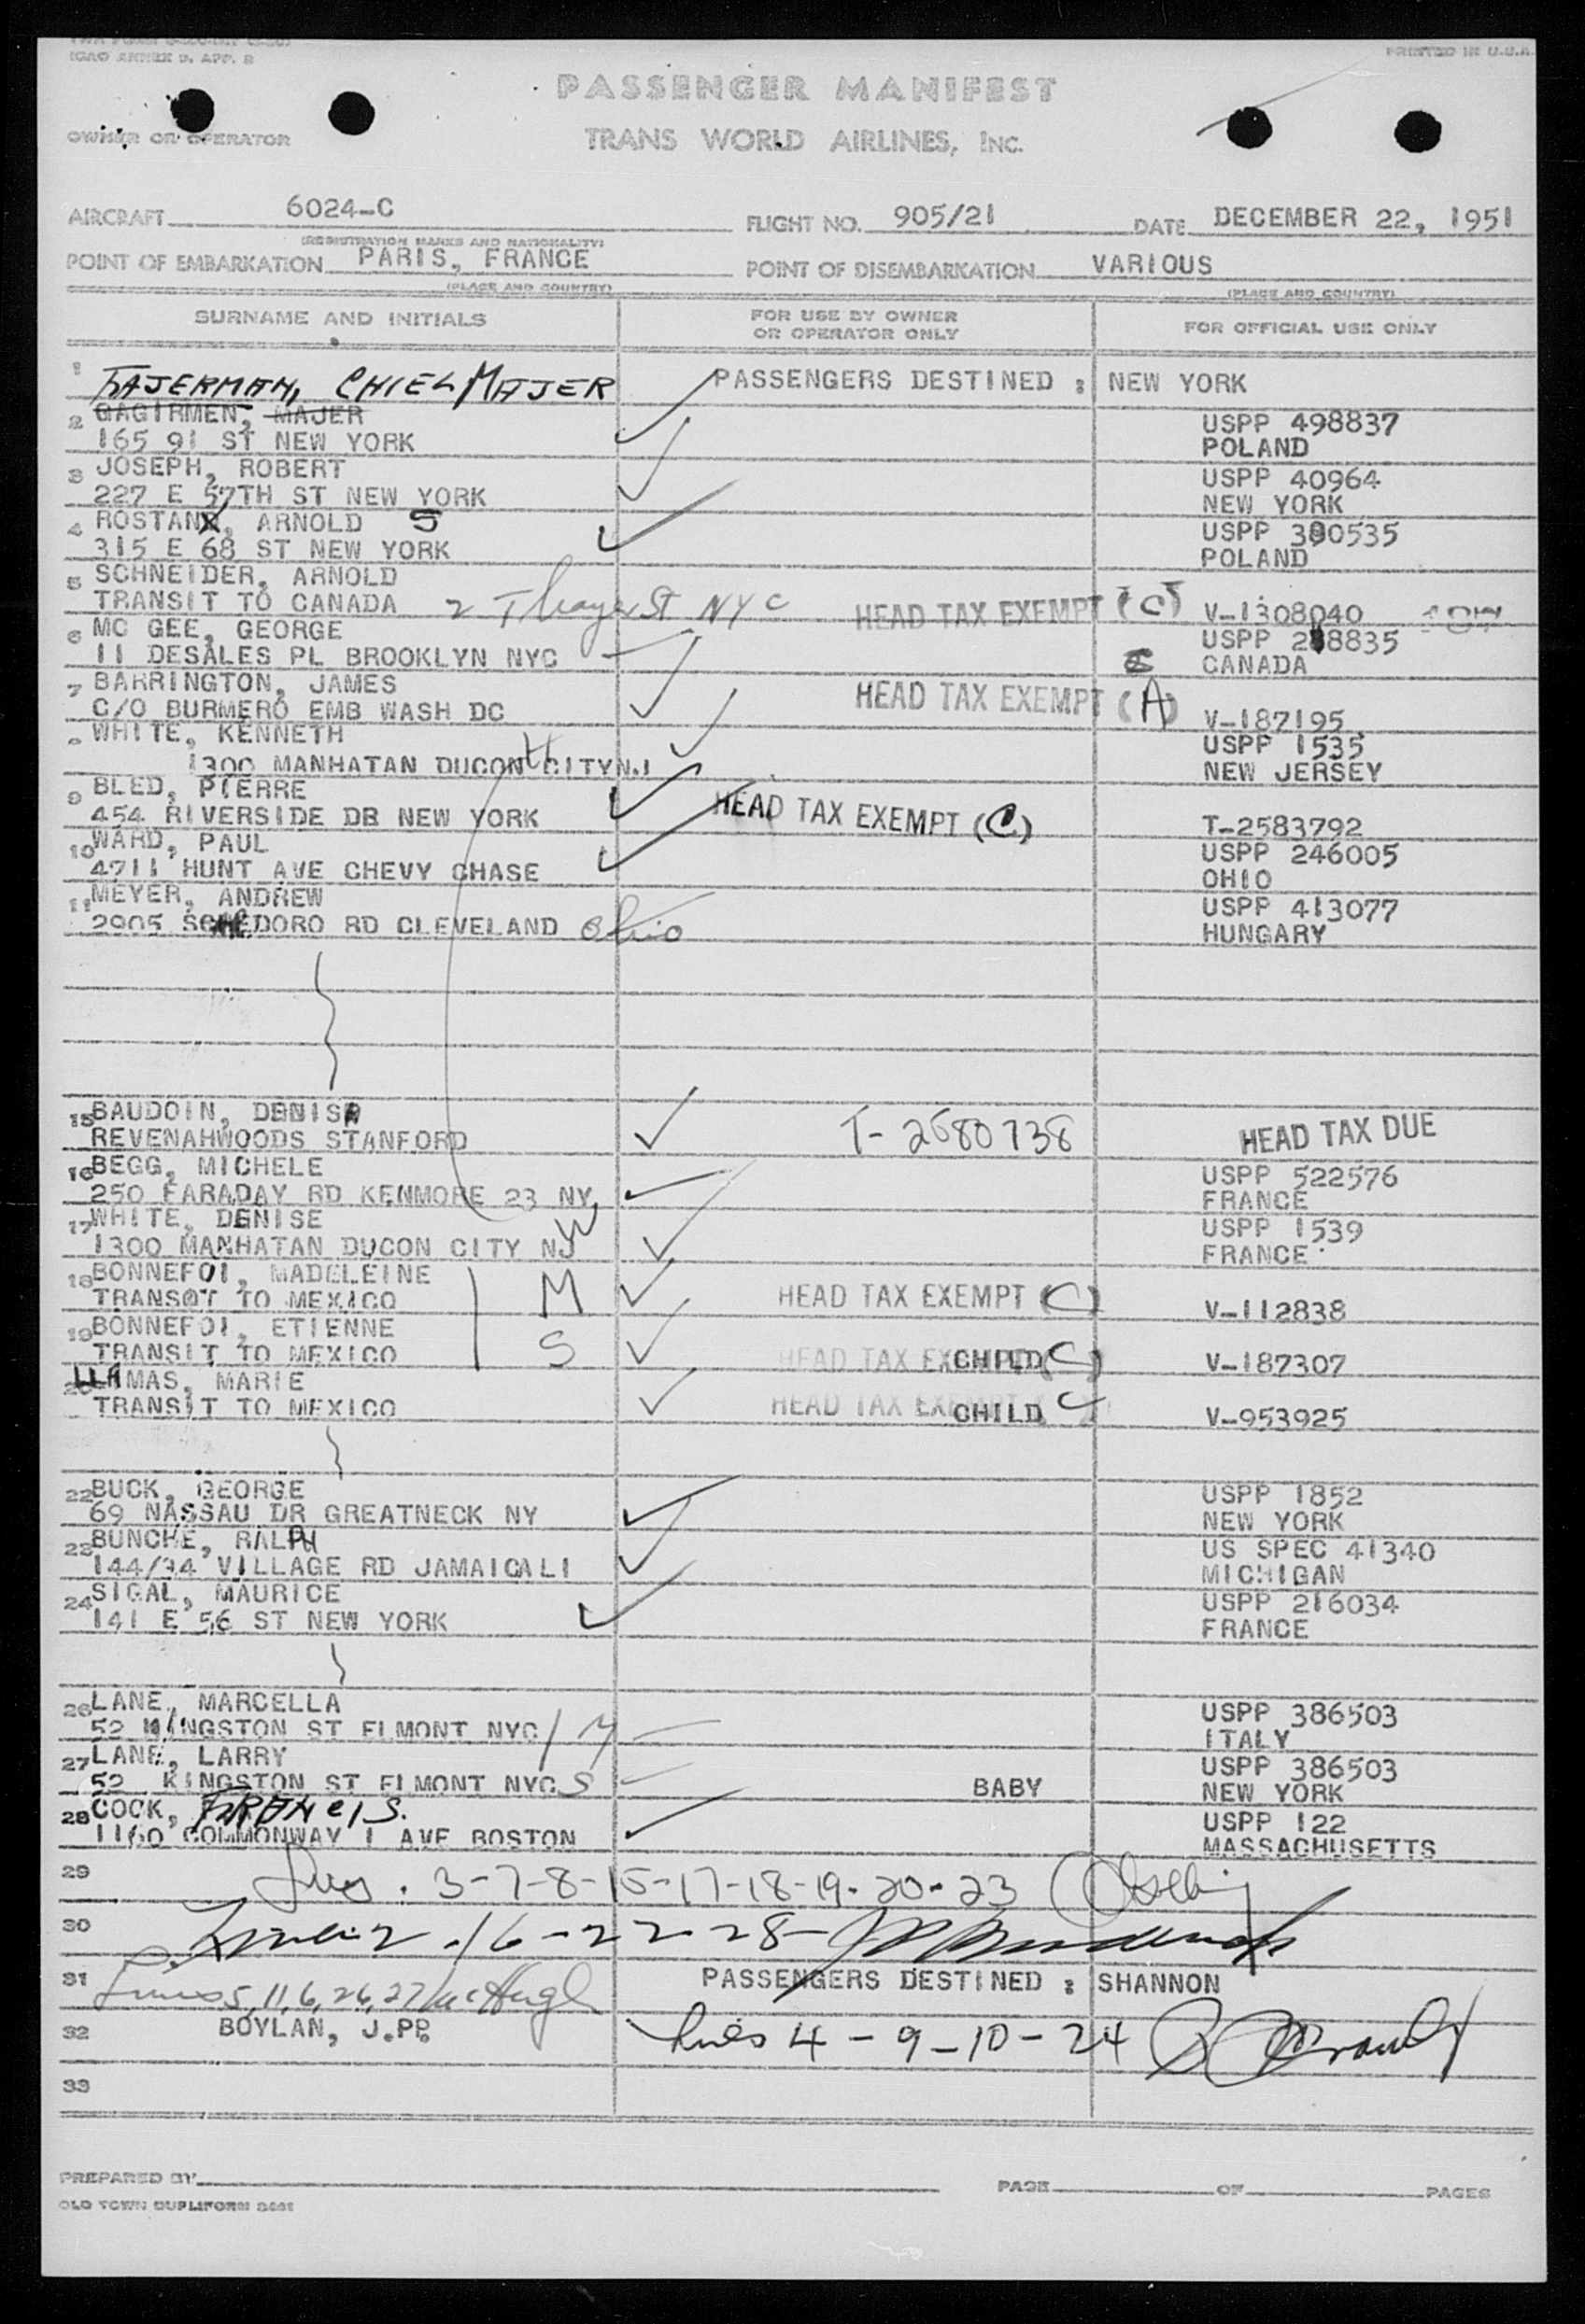 ICAO ANNEX 9, APP. B
PRINTED IN U.S.A.
PASSENGER MANIFEST
OWNER OR OPERATOR
TRANS WORLD AIRLINES, INC.
AIRCRAFT 6024-C FLIGHT NO. 905/21 DATE DECEMBER 22, 1951
(REGISTRATION MARKS AND NATIONALITY)
POINT OF EMBARKATION PARIS, FRANCE POINT OF DISEMBARKATION VARIOUS
(PLACE AND COUNTRY) (PLACE AND COUNTRY)
SURNAME AND INITIALS FOR USE BY OWNER OR OPERATOR ONLY FOR OFFICIAL USE ONLY
1 FAJERMAN, CHIEL MAJER PASSENGERS DESTINED : NEW YORK
2 GAGIRMEN, MAJER USPP 498837
165 91 ST NEW YORK POLAND
3 JOSEPH, ROBERT USPP 40964
227 E 57TH ST NEW YORK NEW YORK
4 ROSTAN, ARNOLD S USPP 300535
315 E 68 ST NEW YORK POLAND
5 SCHNEIDER, ARNOLD
TRANSIT TO CANADA 2 Thayer St NYC HEAD TAX EXEMPT (C) V-1308040
6 MC GEE, GEORGE USPP 288835
11 DESALES PL BROOKLYN NYC CANADA
7 BARRINGTON, JAMES HEAD TAX EXEMPT (A)
C/O BURMERO EMB WASH DC V-187195
WHITE, KENNETH USPP 1535
1300 MANHATAN DUCON CITY NJ NEW JERSEY
9 BLED, PIERRE HEAD TAX EXEMPT (C)
454 RIVERSIDE DR NEW YORK T-2583792
10 WARD, PAUL USPP 246005
4711 HUNT AVE CHEVY CHASE OHIO
11 MEYER, ANDREW USPP 413077
2905 DORO RD CLEVELAND Ohio HUNGARY
15 BAUDOIN, DENISA
REVENAHWOODS STANFORD T-2680738 HEAD TAX DUE
16 BEGG, MICHELE USPP 522576
250 FARADAY RD KENMORE 23 NY FRANCE
17 WHITE, DENISE USPP 1539
1300 MANHATAN DUCON CITY NJ FRANCE
18 BONNEFOI, MADELEINE
TRANSOT TO MEXICO M HEAD TAX EXEMPT (C) V-112838
19 BONNEFOI, ETIENNE
TRANSIT TO MEXICO S HEAD TAX EXEMPT (C) CHILD V-187307
LLAMAS, MARIE
TRANSIT TO MEXICO HEAD TAX EXEMPT C CHILD V-953925
22 BUCK, GEORGE USPP 1852
69 NASSAU DR GREATNECK NY NEW YORK
23 BUNCHE, RALPH US SPEC 41340
144/34 VILLAGE RD JAMAICA LI MICHIGAN
24 SIGAL, MAURICE USPP 216034
141 E 56 ST NEW YORK FRANCE
26 LANE, MARCELLA USPP 386503
52 KINGSTON ST ELMONT NYC M ITALY
27 LANE, LARRY USPP 386503
52 KINGSTON ST ELMONT NYC S BABY NEW YORK
28 COCK, FRANCIS. USPP 122
1160 COMMONWAY L AVE BOSTON MASSACHUSETTS
29 3-7-8-15-17-18-19-20-23
30 16-22-28-
31 Lines 5, 11, 6, 26, 27 McHugh PASSENGERS DESTINED : SHANNON
32 BOYLAN, J.PP. lines 4-9-10-24
33
PREPARED BY PAGE OF PAGES
OLD TOWN DUPLIFORM